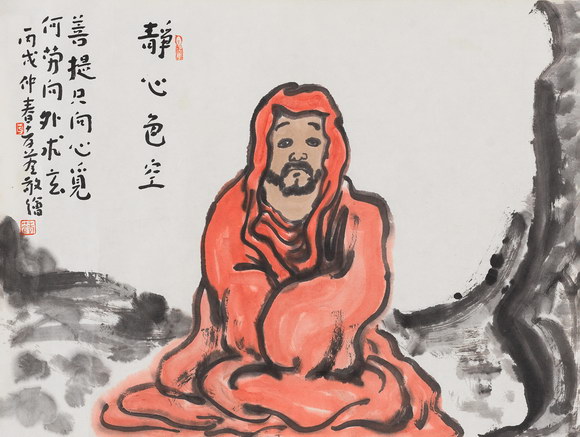 靜心色空
菩提只向心覓
何勞向外求玄
丙戌仲春敬繪